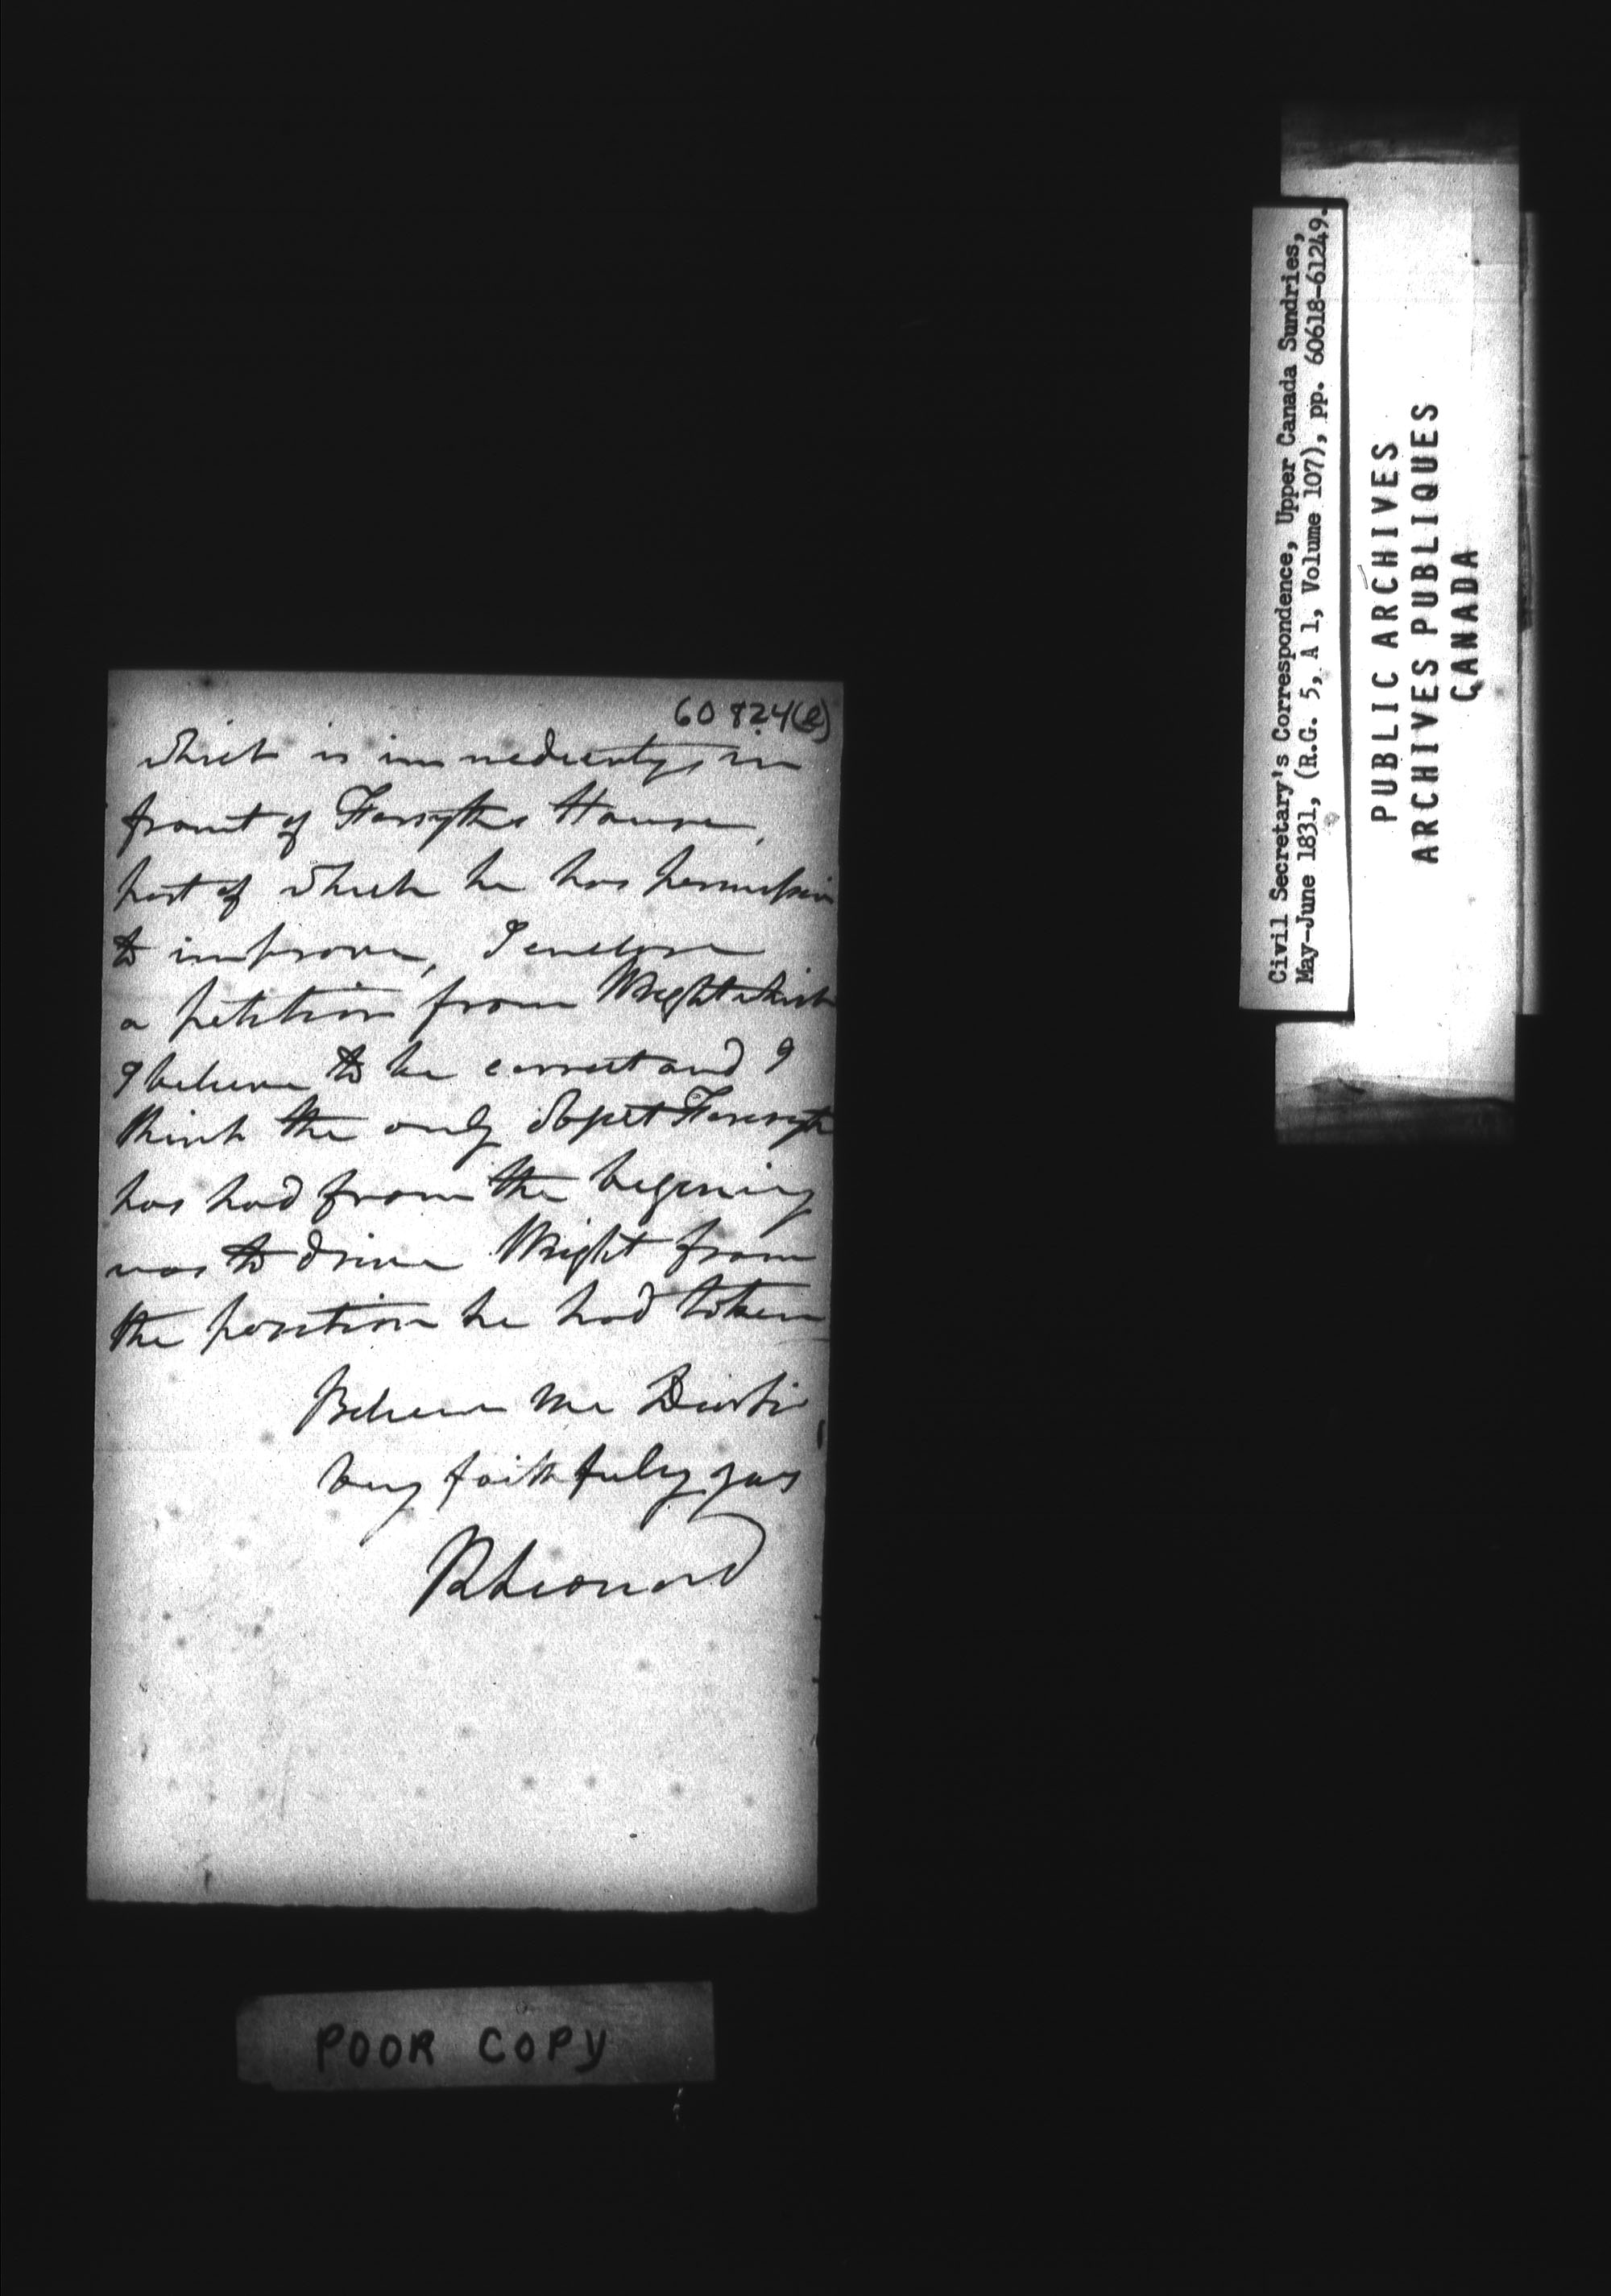 60824(2)
which is immediently in
front of Forsyths House,
part of which he has permission
to improve, I enclose
a petition from Wright which
I believe to be correct and I
think the only object Forsyth
has had from the begining
was to drive Wright from
the position he had taken
Believe me Dear Sir
very faithfuly yours
R Leonard
POOR COPY
Civil Secretary's Correspondence, Upper Canada Sundries,
May-June 1831, (R.G. 5, A 1, Volume 107), pp. 60618-61249.
PUBLIC ARCHIVES
ARCHIVES PUBLIQUES
CANADA